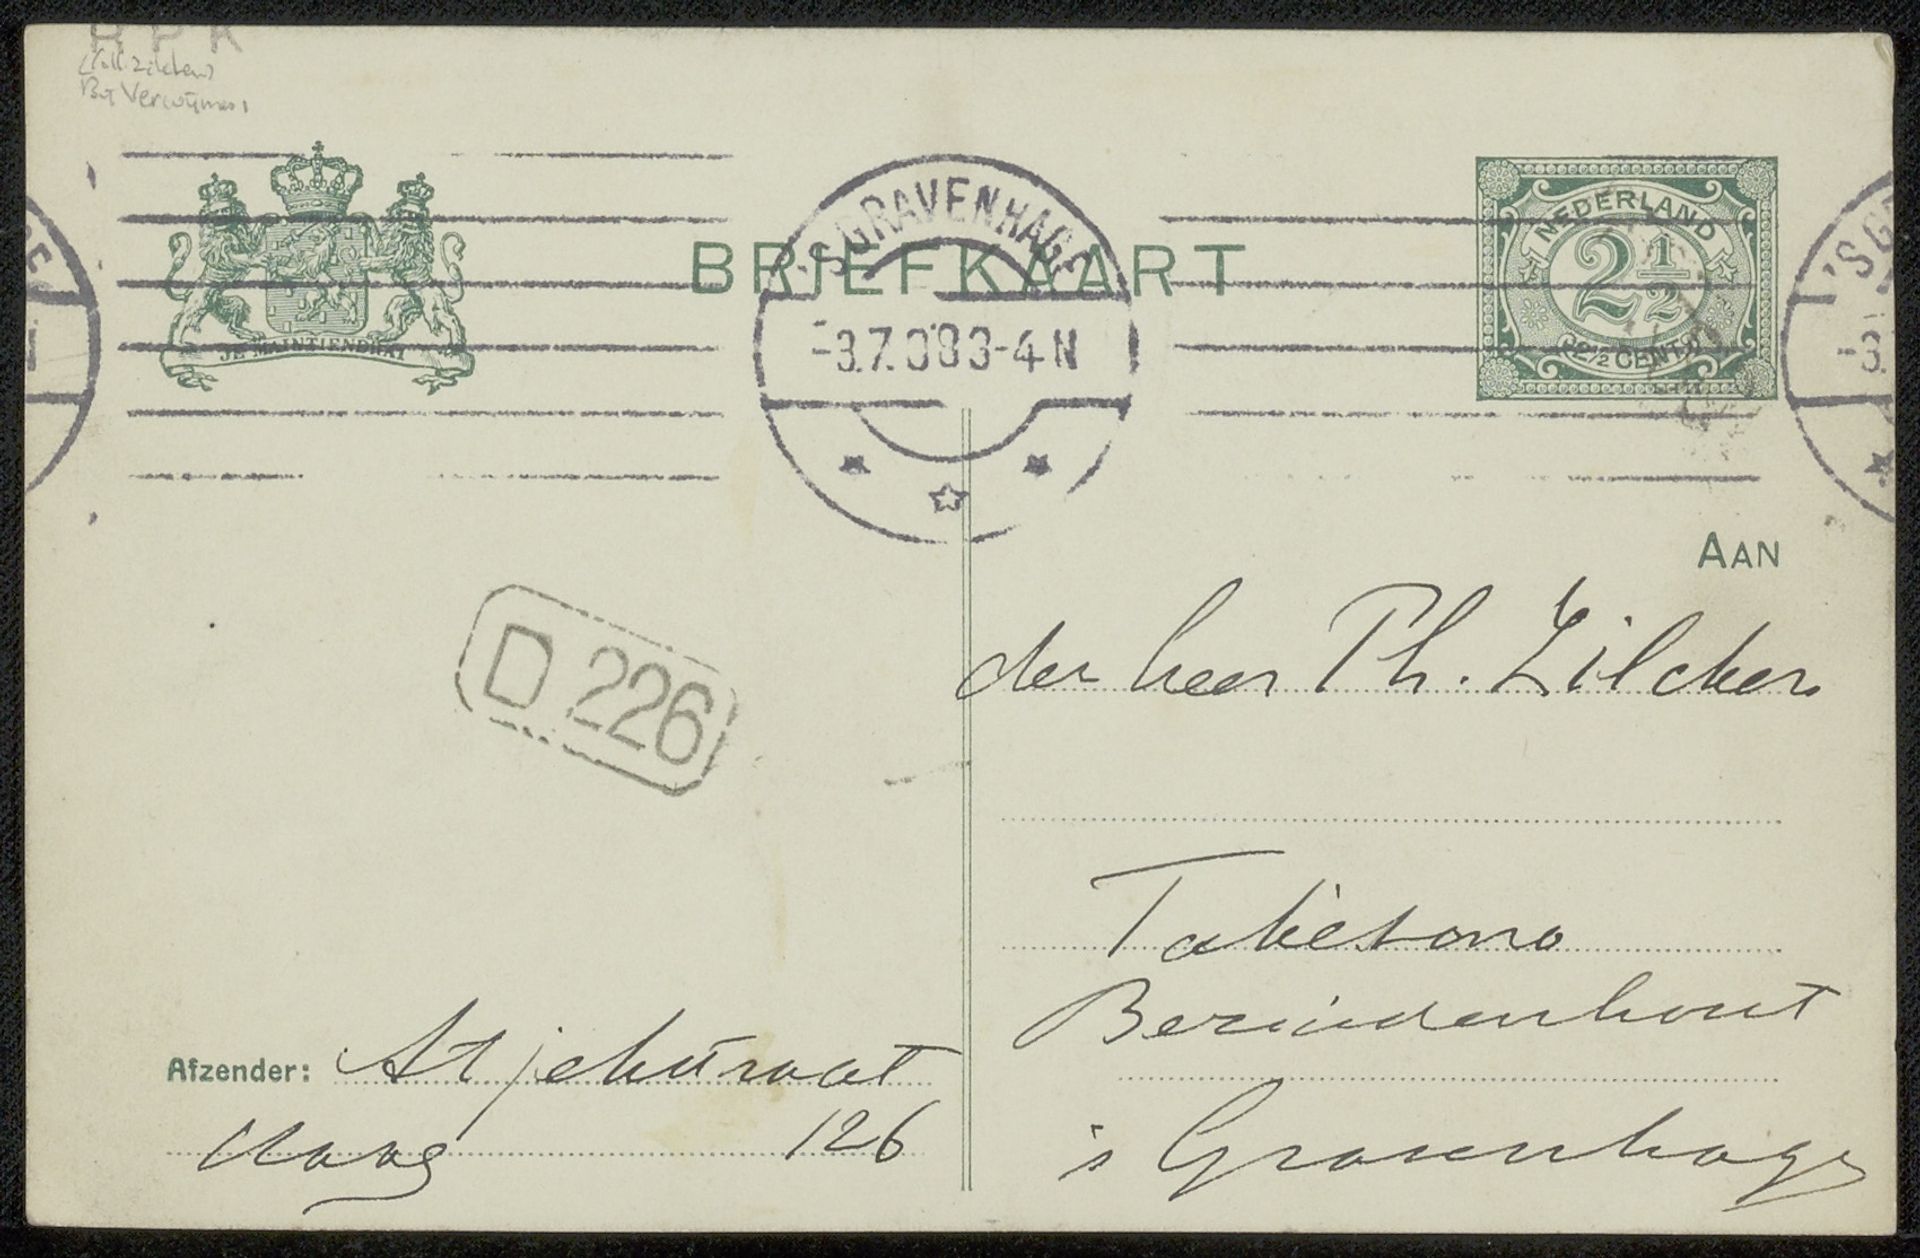 RPK
(Coll. Zilcken)
JE MAINTIENDRAI
BRIEFKAART
'SGRAVENHAGE
-3.7.08 3-4 N
NEDERLAND
2 1/2
2½ CENT
'SG
-3.
D 226
AAN
den heer Ph. Zilcken
Bezuidenhout
's Gravenhage
Afzender: Atjehstraat
Haag 126